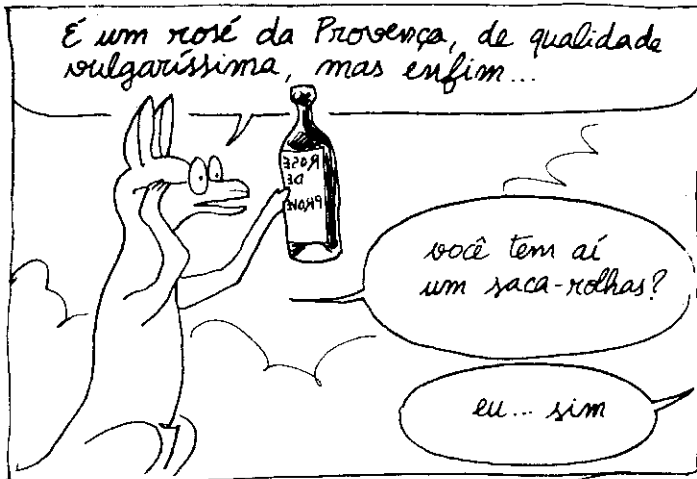 É um rosé da Provença, de qualidade
vulgaríssima, mas enfim...
ROSE
DE
PROVE
você tem aí
um saca-rolhas?
eu... sim